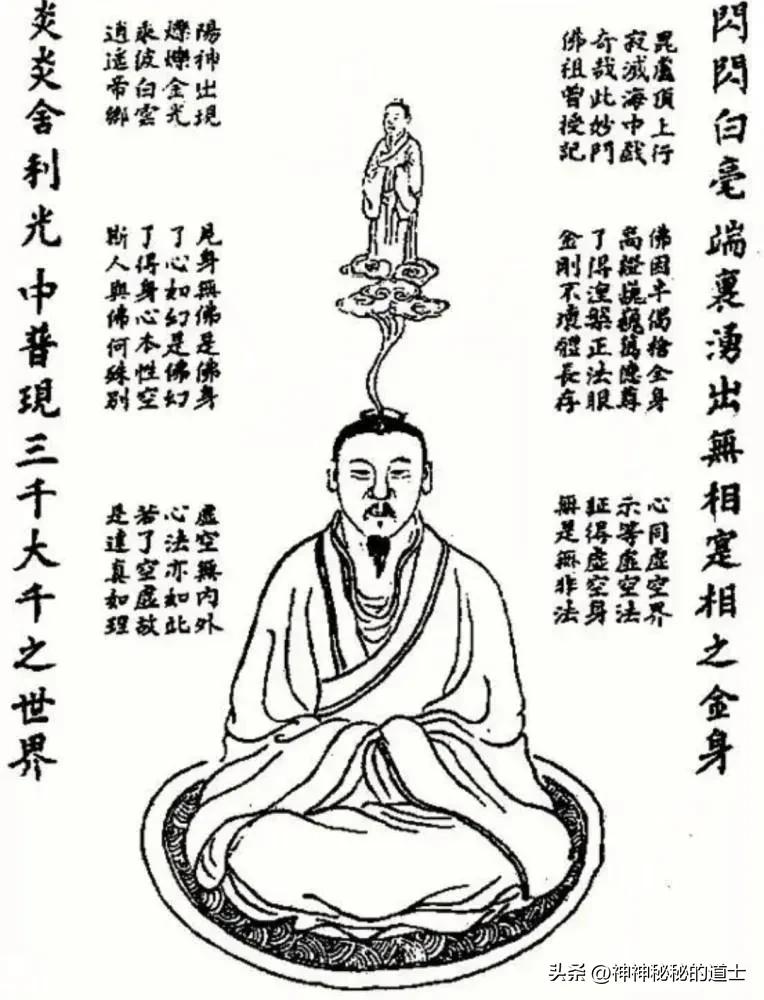 閃閃白毫端裏湧出無相寔相之金身
毘盧頂上行
寂滅海中戲
奇哉此妙門
佛祖曾授記
佛因半偈捨全身
高證巍巍萬德尊
了得涅槃正法眼
金剛不壞體長存
心同虛空界
示等虛空法
証得虛空身
無是無非法
陽神出現
爍爍金光
乘彼白雲
逍遙帝鄉
見身無佛是佛身
了心如幻是佛幻
了得身心本性空
斯人與佛何殊別
虛空無內外
心法亦如此
若了空虛故
是達真如理
炎炎舍利光中普現三千大千之世界
头条 @神神秘秘的道士